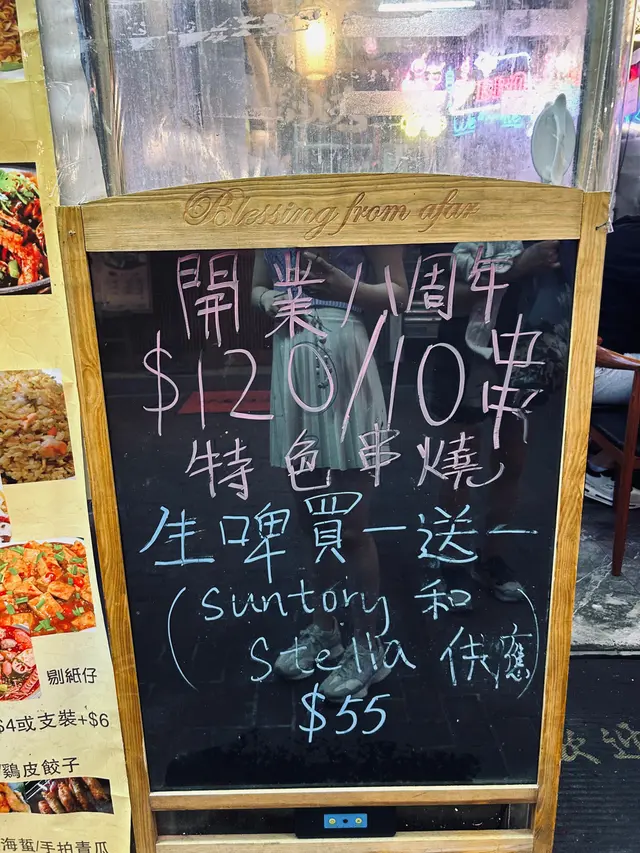 Blessing from afar
開業八周年
$120/10串
特色串燒
生啤買一送一
(Suntory 和
Stella 供應)
$55
剔紙仔
$4或支裝+$6
雞皮餃子
海蜇/手拍青瓜
歡迎